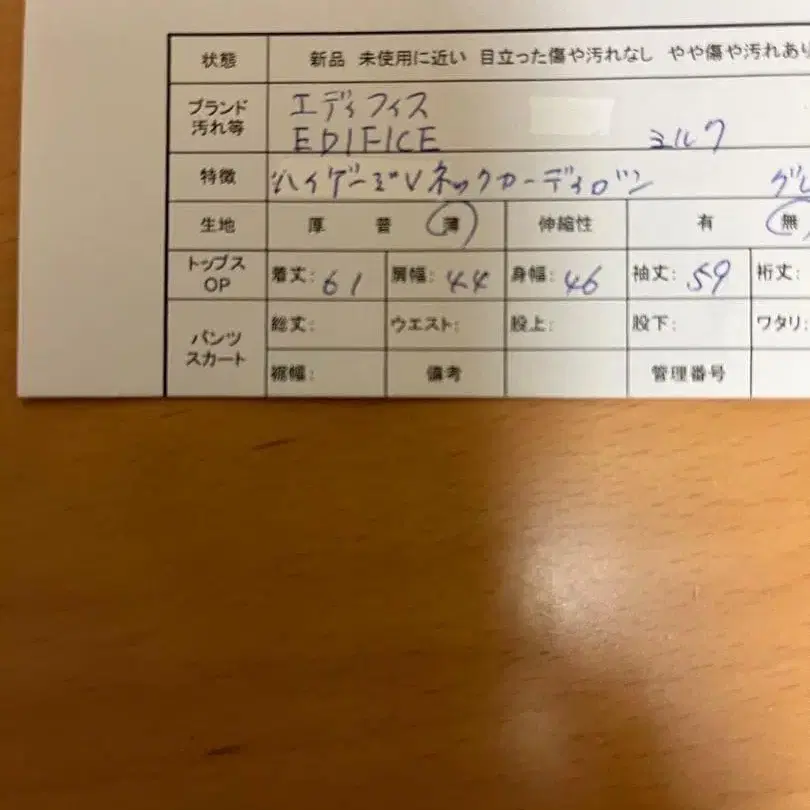 状態 新品 未使用に近い 目立った傷や汚れなし やや傷や汚れあり
ブランド 汚れ等 エディフィス
EDIFICE ミルク
特徴 ハイゲージVネックカーディガン グレ
生地 厚 普 薄 伸縮性 有 無
トップス OP 着丈: 61 肩幅: 44 身幅: 46 袖丈: 59 裄丈:
パンツ スカート 総丈: ウエスト: 股上: 股下: ワタリ:
裾幅: 備考 管理番号